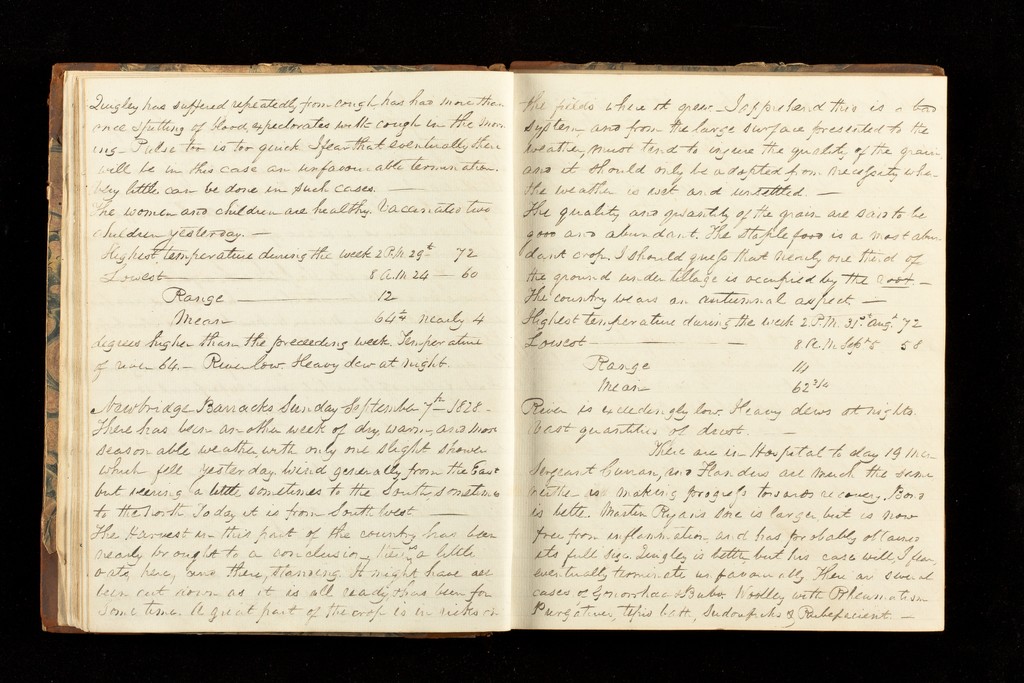 Quigley has suffered repeatedly from cough, has had more than
once spitting of blood, expectorates with cough in the morn
ing – Pulse too is too quick I fear that eventually there
will be in this case an unfavourable termination.
Very little can be done in such cases. —
The women and children are healthy. Vaccinated two
children yesterday. —
Highest temperature during the week 2 P.M. 29th 72
Lowest — 8 A.M. 24 — 60
Range — 12
Mean 64 nearly 4
degrees higher than the preceeding week. Temperature
of river 64. – River low. Heavy dew at night.
Newbridge Barracks Sunday September 7th 1828 –
There has been another week of dry, warm, and most
seasonable weather, with only one slight shower
which fell yesterday. Wind generally from the East
but veering a little sometimes to the South, sometimes
to the North. Today it is from South West —
The Harvest in this part of the country has been
nearly brought to a conclusion, a little
oats, here, and there, standing. It might have all
been cut down as it is all ready, & has been for
some time. A great part of the crop is in ricks in
the fields where it grew – I apprehend this is a bad
system, and from the large surface presented to the
weather, must tend to injure the quality of the grain,
and it should only be adopted from necessity when
the weather is wet and unsettled. —
The quality and quantity of the grain are said to be
good and abundant. The staple food is a most abun
dant crop. I should guess that nearly one third of
the ground under tillage is occupied by the root. –
The country wears an autumnal aspect —
Highest temperature during the week 2 P.M. 31st Augt 72
Lowest — 8 A.M. Sept 5 58
Range 14
Mean 62 3/10
River is exceedingly low. Heavy dews at nights.
Vast quantities of dust. —
There are in Hospital to day 19 Men
Sergeant Curran, and Flanders are much the same
neither is making progress towards recovery. Bond
is better. Martin Ryan's sore is large, but is now
free from inflammation, and has probably obtained
its full size. Quigley is better, but his case will, I fear,
eventually terminate unfavourably. There are several
cases of Gonorrhoea & Bubo. Woolley with Rheumatism
Purgatives, tepid bath, Sudorifics & Rubefacient. —